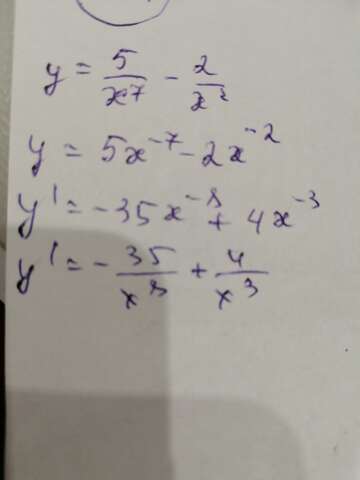 y = 5/x⁷ - 2/x²
y = 5x⁻⁷ - 2x⁻²
y' = -35x⁻⁸ + 4x⁻³
y' = -35/x⁸ + 4/x³